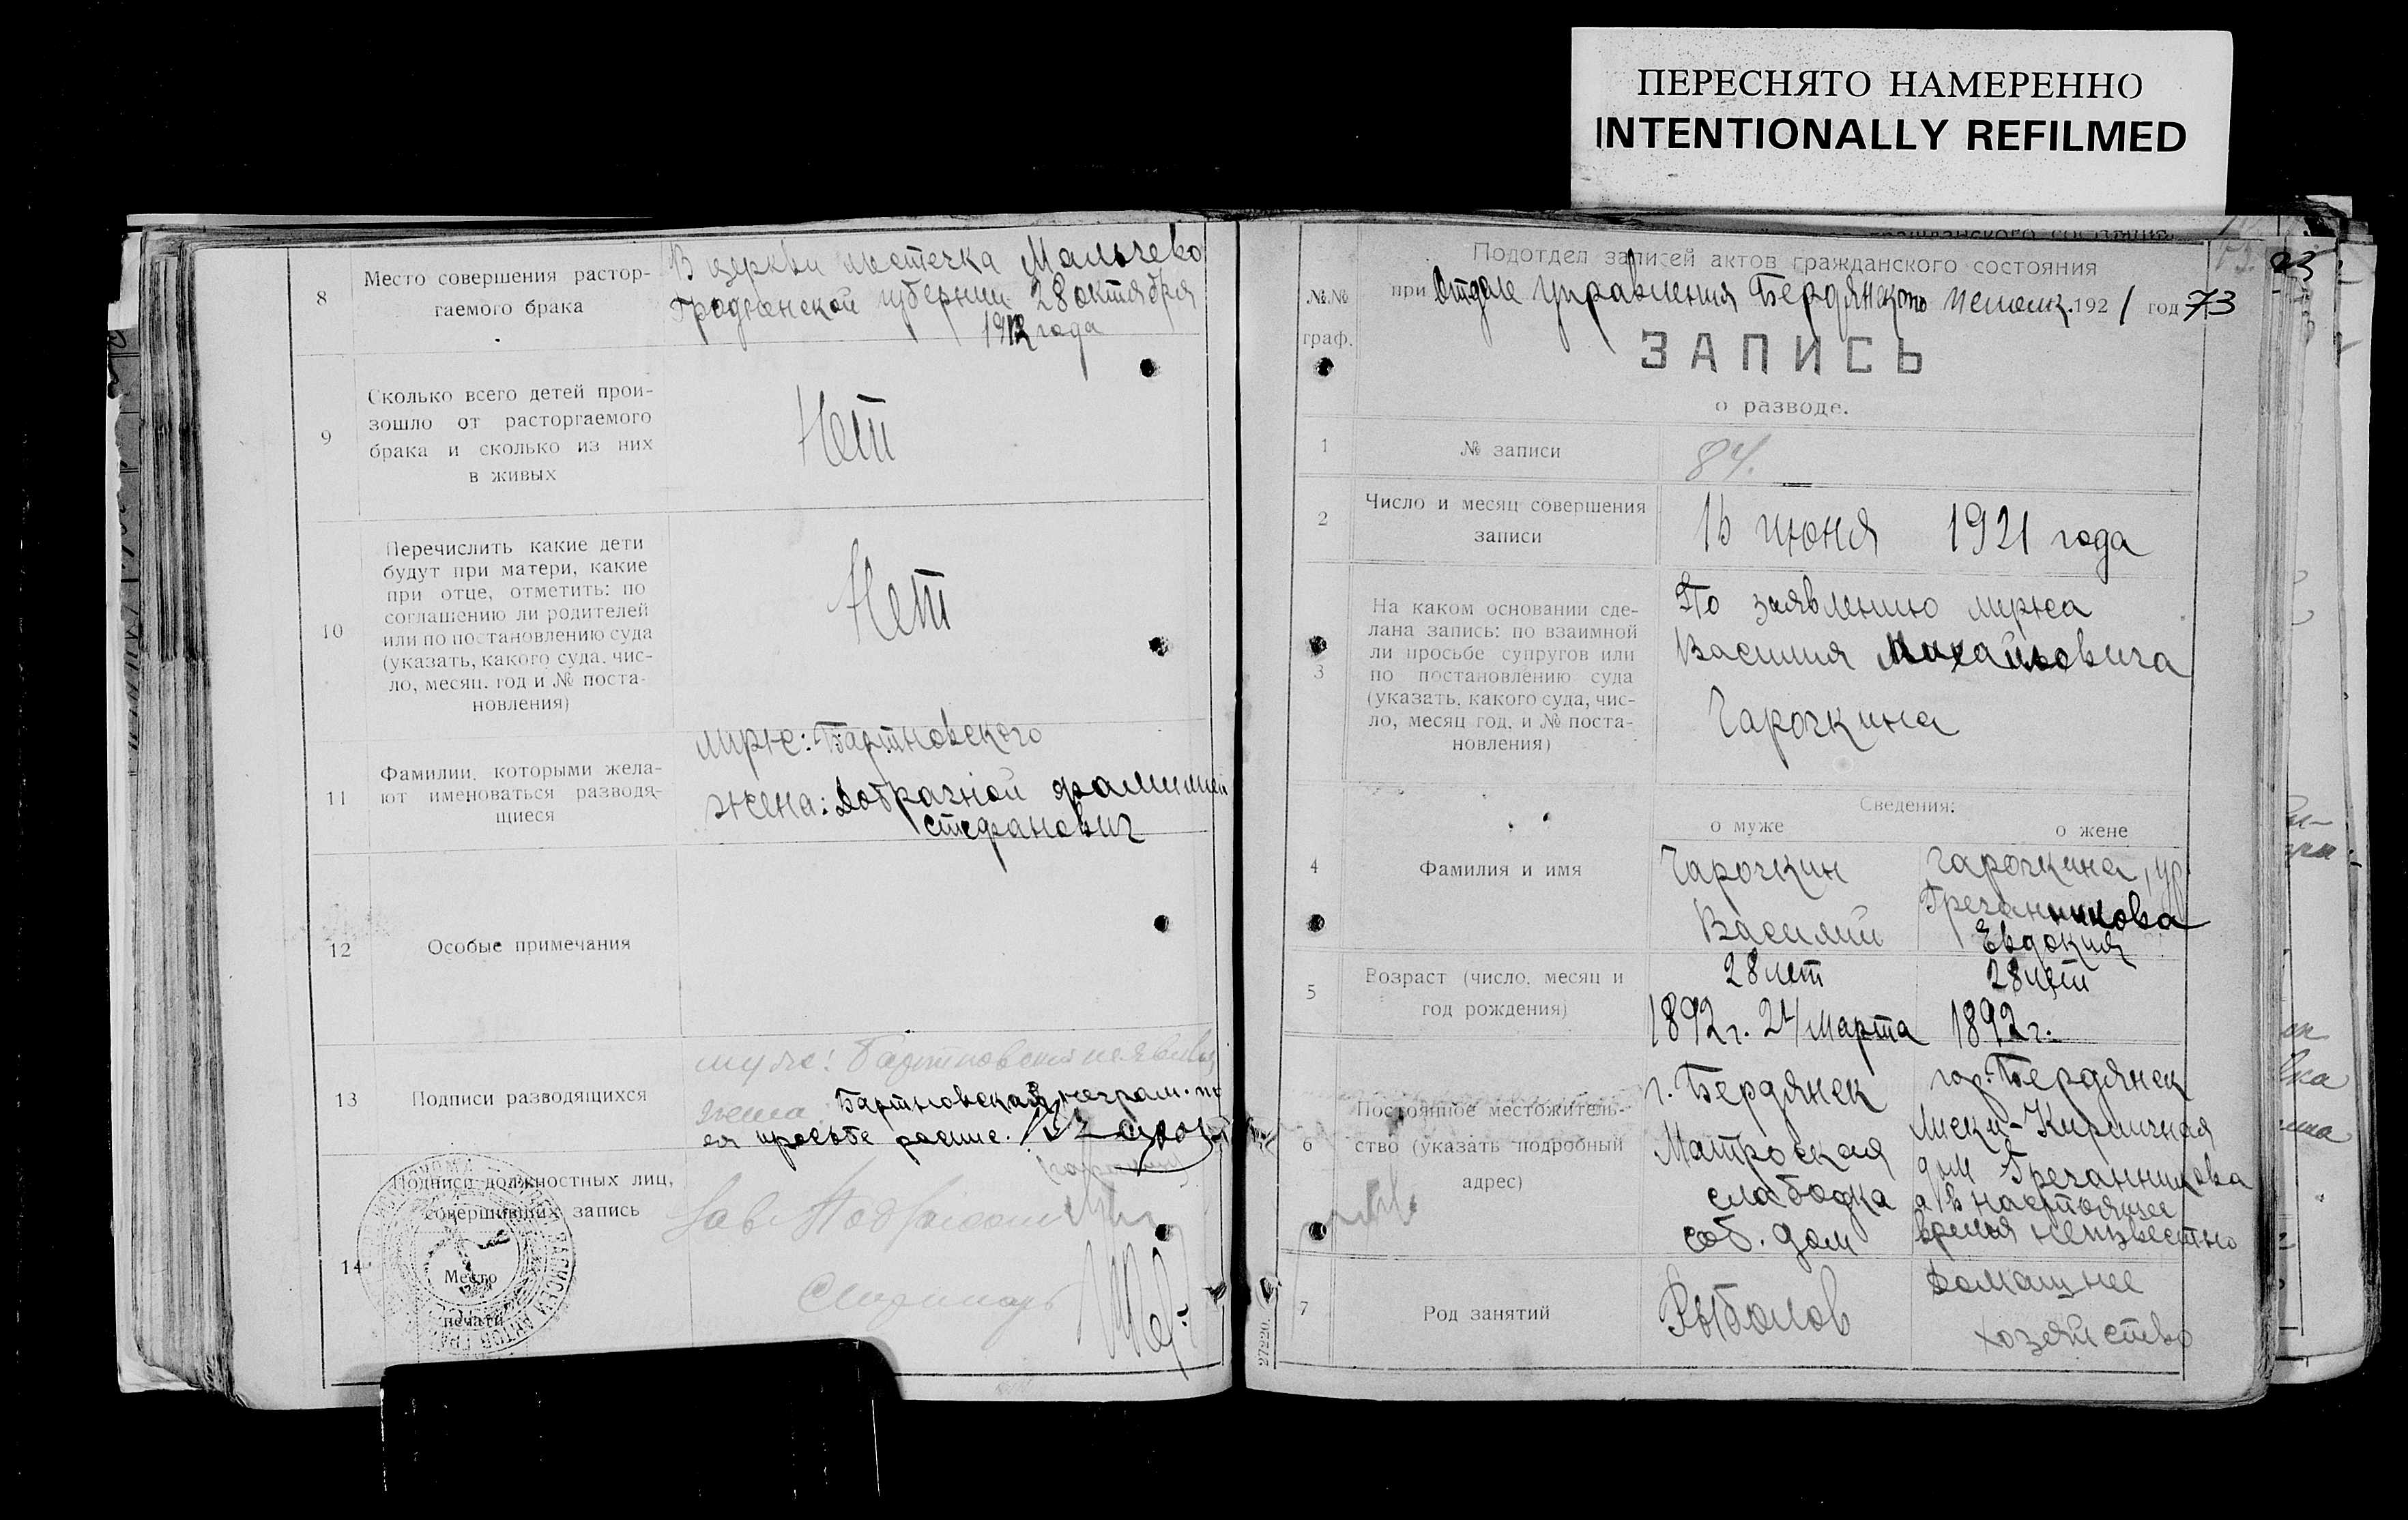 ПЕРЕСНЯТО НАМЕРЕННО
INTENTIONALLY REFILMED
8
Место совершения растор-
гаемого брака
В церкви местечка Мальчево
Гродненской губернии 28 октября
1912 года
9
Сколько всего детей прои-
зошло от расторгаемого
брака и сколько из них
в живых
Нет
10
Перечислить какие дети
будут при матери, какие
при отце, отметить: по
соглашению ли родителей
или по постановлению суда
(указать, какого суда, чис-
ло, месяц. год и № поста-
новления)
Нет
11
Фамилии, которыми жела-
ют именоваться разводя-
щиеся
муж: Бартновского
жена: Добрачной фамилией
Стефанович
12
Особые примечания
13
Подписи разводящихся
муж: Бартновский не явился
жена Бартновская, неграм. по
ея просьбе распис.
14
Подписи должностных лиц,
совершивших запись
Место
печати
Зав. Подотделом
Секретарь
Подотдел записей актов гражданского состояния
№№
граф.
при Отделе Управления Бердянского Исполк. 1921 год 73
ЗАПИСЬ
о разводе.
1
№ записи
84.
2
Число и месяц совершения
записи
16 июня 1921 года
3
На каком основании сде-
лана запись: по взаимной
ли просьбе супругов или
по постановлению суда
(указать, какого суда, чис-
ло, месяц год, и № поста-
новления)
По заявлению мужа
Василия Михайловича
Чарочкина
Сведения:
о муже
о жене
4
Фамилия и имя
Чарочкин
Василий
Чарочкина, ур.
Гречанникова
Евдокия
5
Возраст (число, месяц и
год рождения)
28 лет
1892 г. 24 Марта
28 лет
1892 г.
6
Постоянное местожитель-
ство (указать подробный
адрес)
г. Бердянск
Матроская
слабодка
соб. дом
гор. Бердянск
Лиски-Кирпичная
дом Гречанникова
а в настоящее
время неизвестно
7
Род занятий
Рыболов
Домашнее
хозяйство
27220.